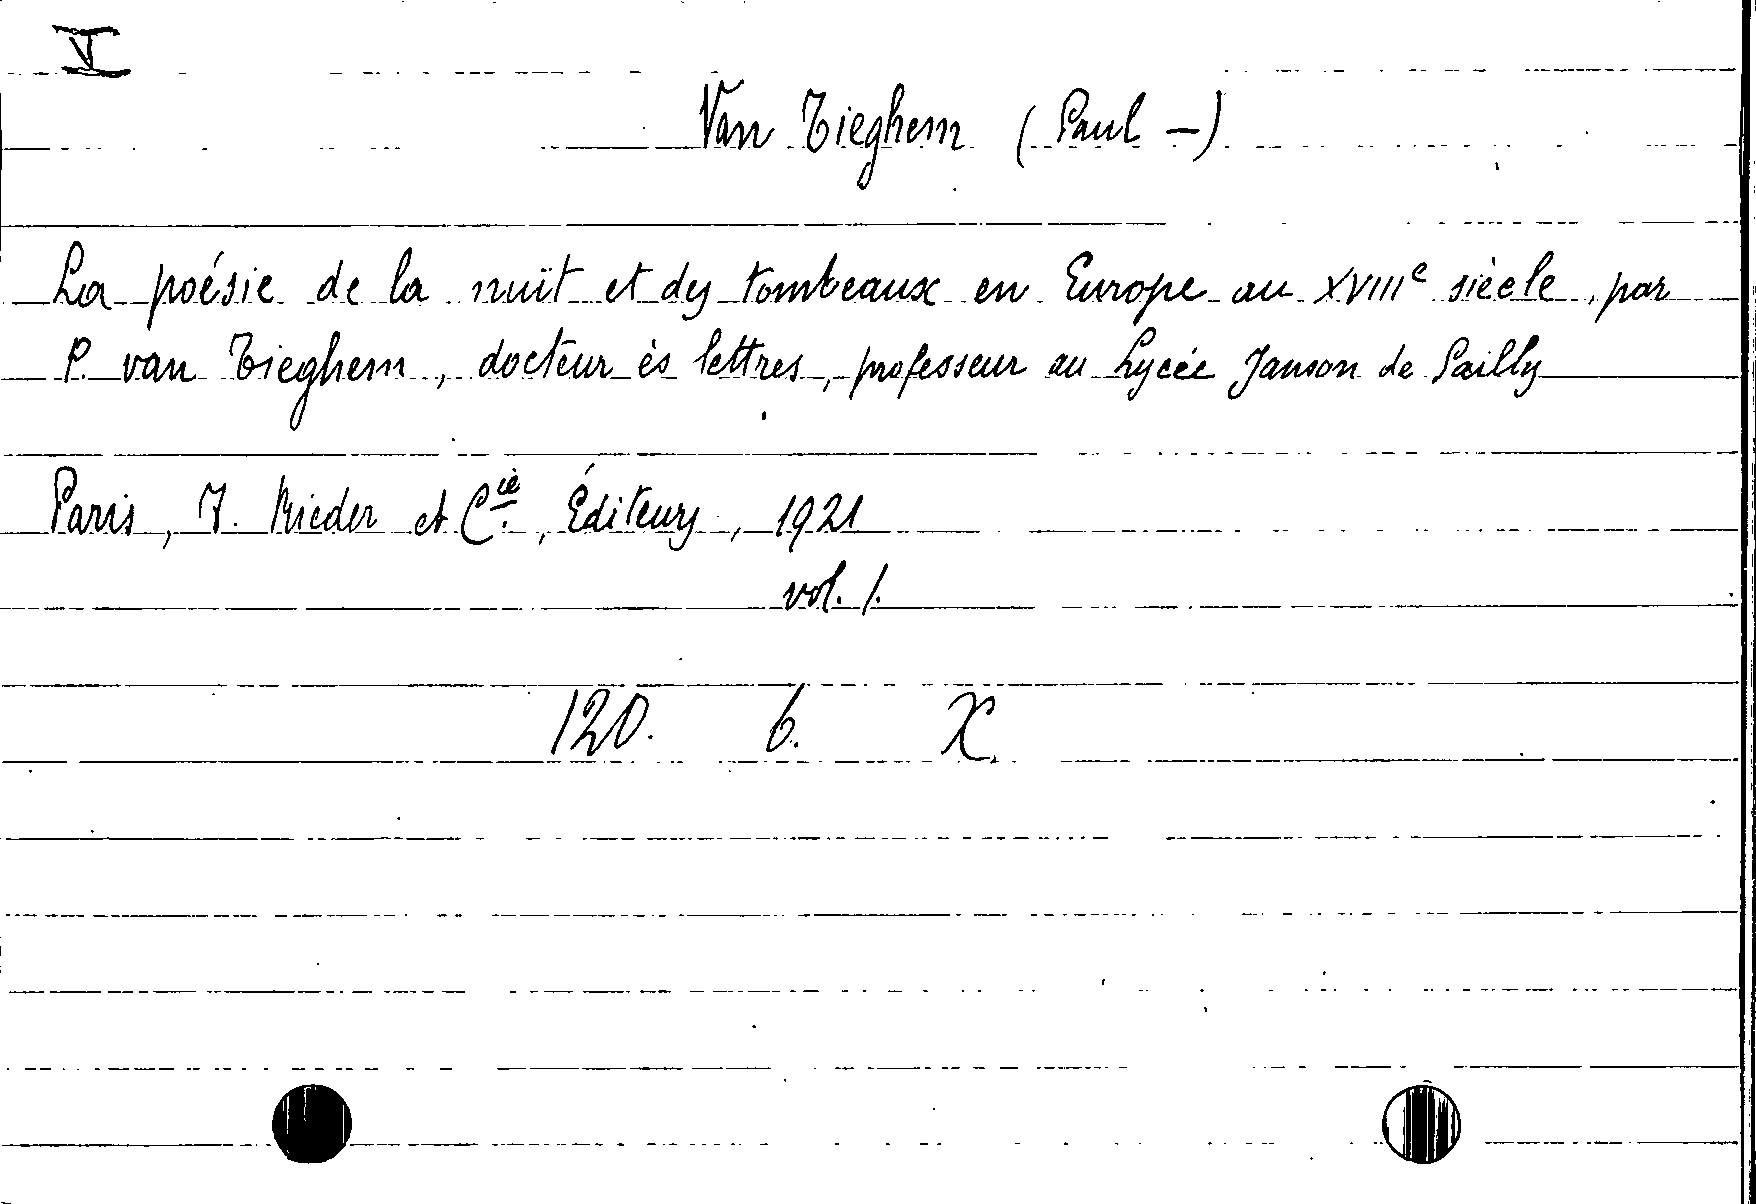 V
Van Tieghem (Paul –)
La poésie de la nuit et des tombeaux en Europe au XVIIIe siècle, par
P. van Tieghem, docteur ès lettres, professeur au Lycée Janson de Sailly
Paris, F. Rieder et Cie., Éditeurs, 1921
vol. 1.
120. 6. X.